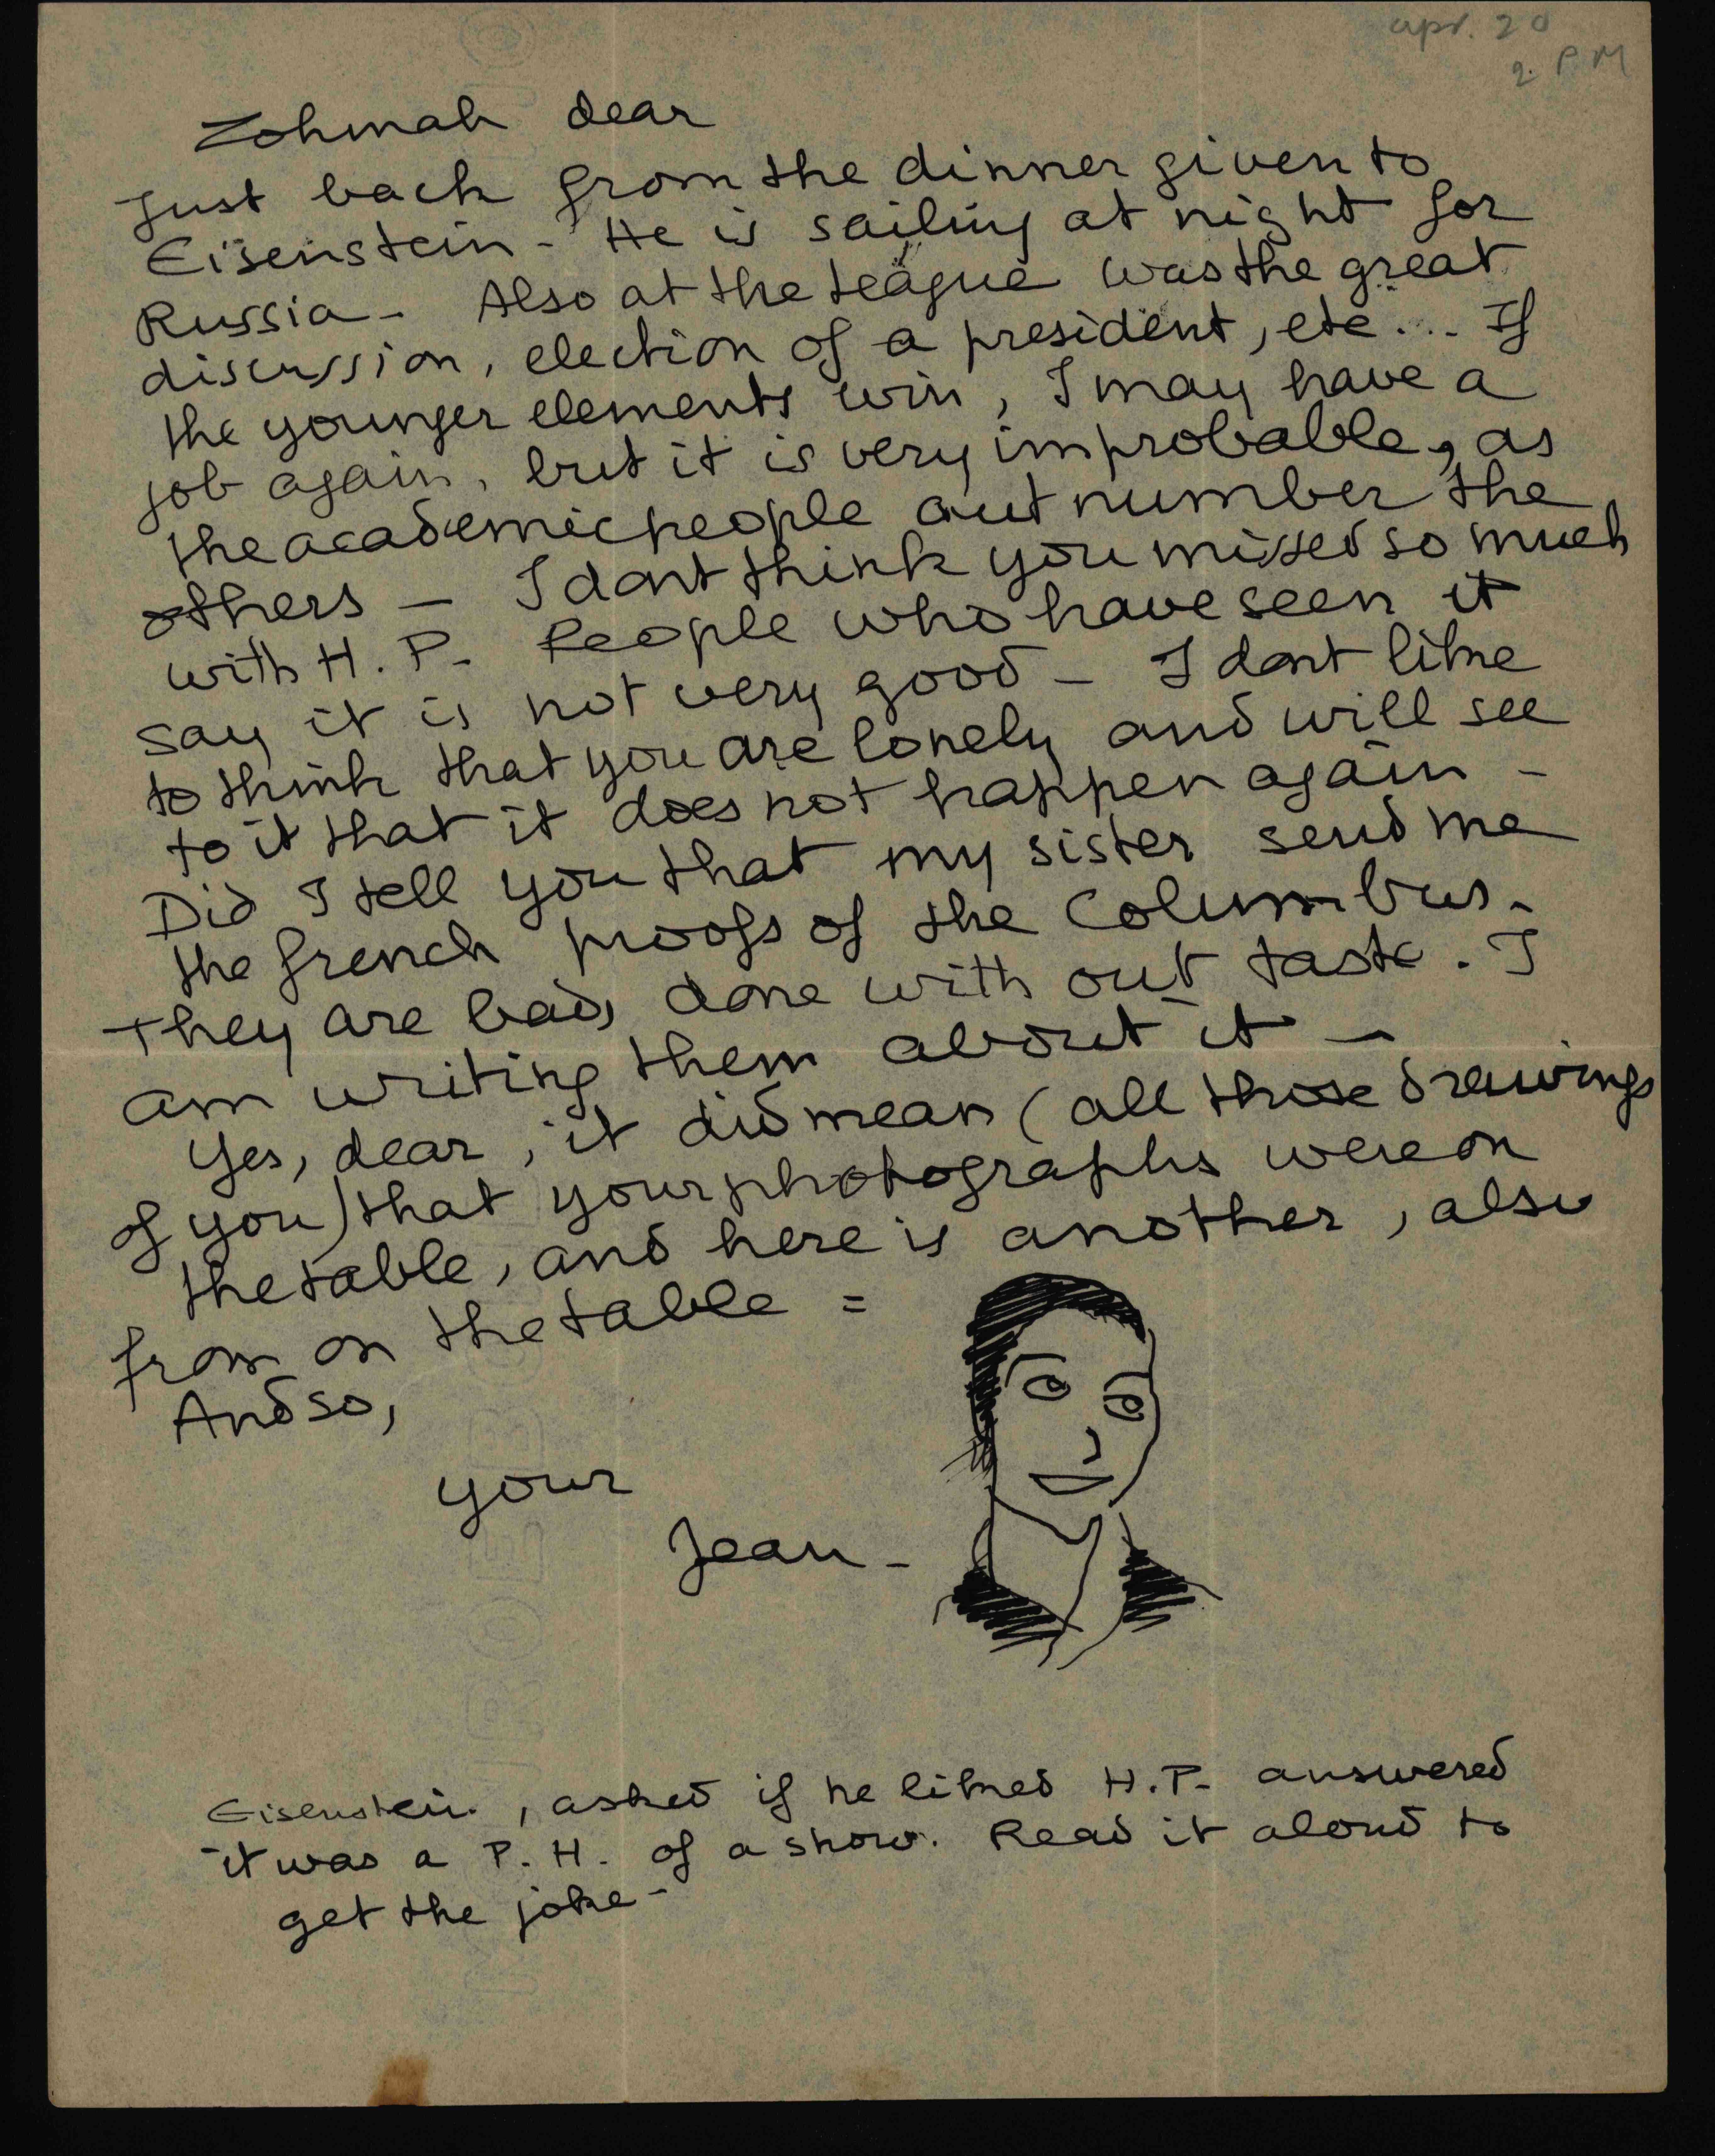 apr. 20
2. PM
Zohmah dear
Just back from the dinner given to
Eisenstein - He is sailing at night for
Russia - Also at the league was the great
discussion, election of a president, etc... If
the younger elements win, I may have a
job again, but it is very improbable, as
the academic people outnumber the
others — I dont think you missed so much
with H. P. People who have seen it
say it is not very good - I dont like
to think that you are lonely and will see
to it that it does not happen again -
Did I tell you that my sister send me
the french proofs of the Columbus -
They are bad, done with out taste. I
am writing them about it —
Yes, dear, it did mean (all those drawings
of you) that your photographs were on
the table, and here is another, also
from on the table =
And so,
your
Jean -
Eisenstein, asked if he liked H.P. answered
it was a P. H. of a show. Read it aloud to
get the joke -